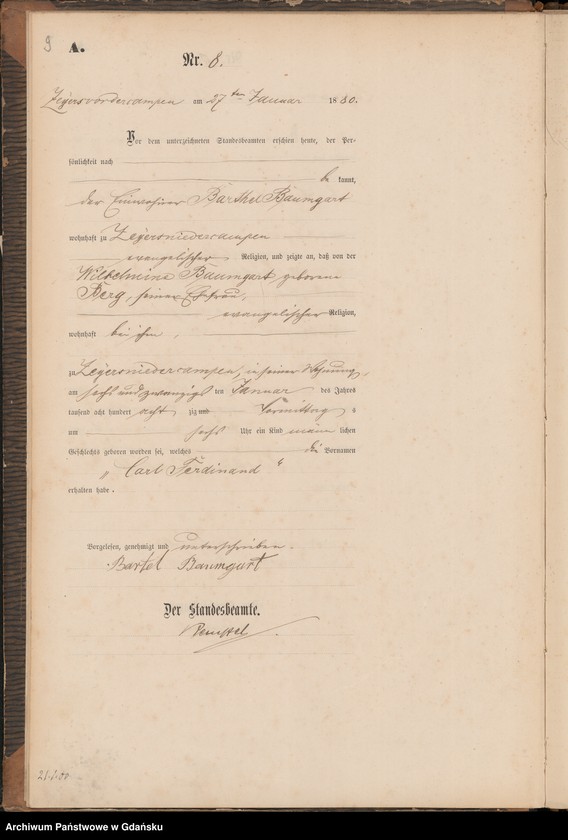 9 A.
Nr. 8.
Zeyersvordercampen am 27ten Januar 1880.
Vor dem unterzeichneten Standesbeamten erschien heute, der Per-
sönlichkeit nach
be kannt,
der Einwohner Barthel Baumgart
wohnhaft zu Zeyersniedercampen
evangelischer Religion, und zeigte an, daß von der
Wilhelmine Baumgart geborene
Berg, seiner Ehefrau,
evangelischer Religion,
wohnhaft bei ihm,
zu Zeyersniedercampen, in seiner Wohnung,
am sechs und zwanzigsten Januar des Jahres
tausend acht hundert acht zig und Vormittag s
um sechs Uhr ein Kind männ lichen
Geschlechts geboren worden sei, welches die Vornamen
„Carl Ferdinand“
erhalten habe.
Vorgelesen, genehmigt und unterschrieben.
Bartel Baumgart
Der Standesbeamte.
Archiwum Państwowe w Gdańsku